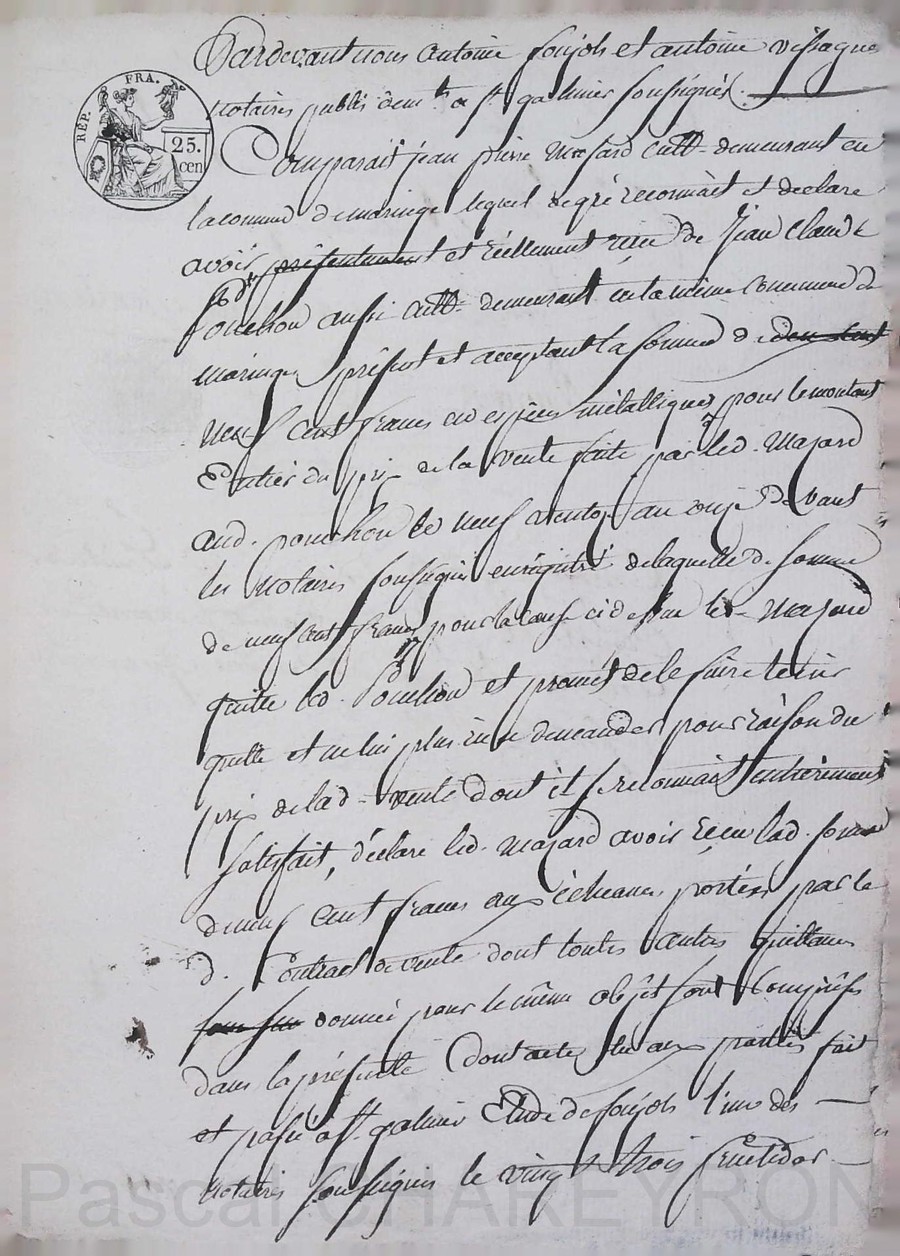 Pardevant nous antoine soujols et antoine
notaires publics a st. galmier soussignés
RÉP. FRA.
25.
cen
Comparait jean pierre Majard cult. demeurant en
la commune de maringe lequel de gré reconnait et declare
avoir présentement et réellement reçu de Jean Claude
Pouchon aussi cult. demeurant en la même commune de
maringe présent et acceptant la somme de
neuf cent francs en espèces métalliques pour le montant
Entier du prix de la vente faite par led. Majard
aud. pouchon le neuf ventose an onze Devant
les Notaires soussignés enrégistré de laquelle d. somme
de neuf cent francs pour la cause ci dessus led. Majard
quitte led. Pouchon et promet de le faire tenir
quitte et ne lui plus rien demander pour raison du
prix de lad. vente dont il se reconnait entièrement
satisfait, déclare led. majard avoir reçu lad. somme
de neuf cent francs aux échéances portées par le
d. Contract de vente dont toutes autres quittances
donnée pour le même objet sont comprises
dans la présente Dont acte lu aux parties fait
et passé a St. galmier Etude de soujols l'un des
notaires soussignés le vingt trois fructidor
Pascal CHAREYRON